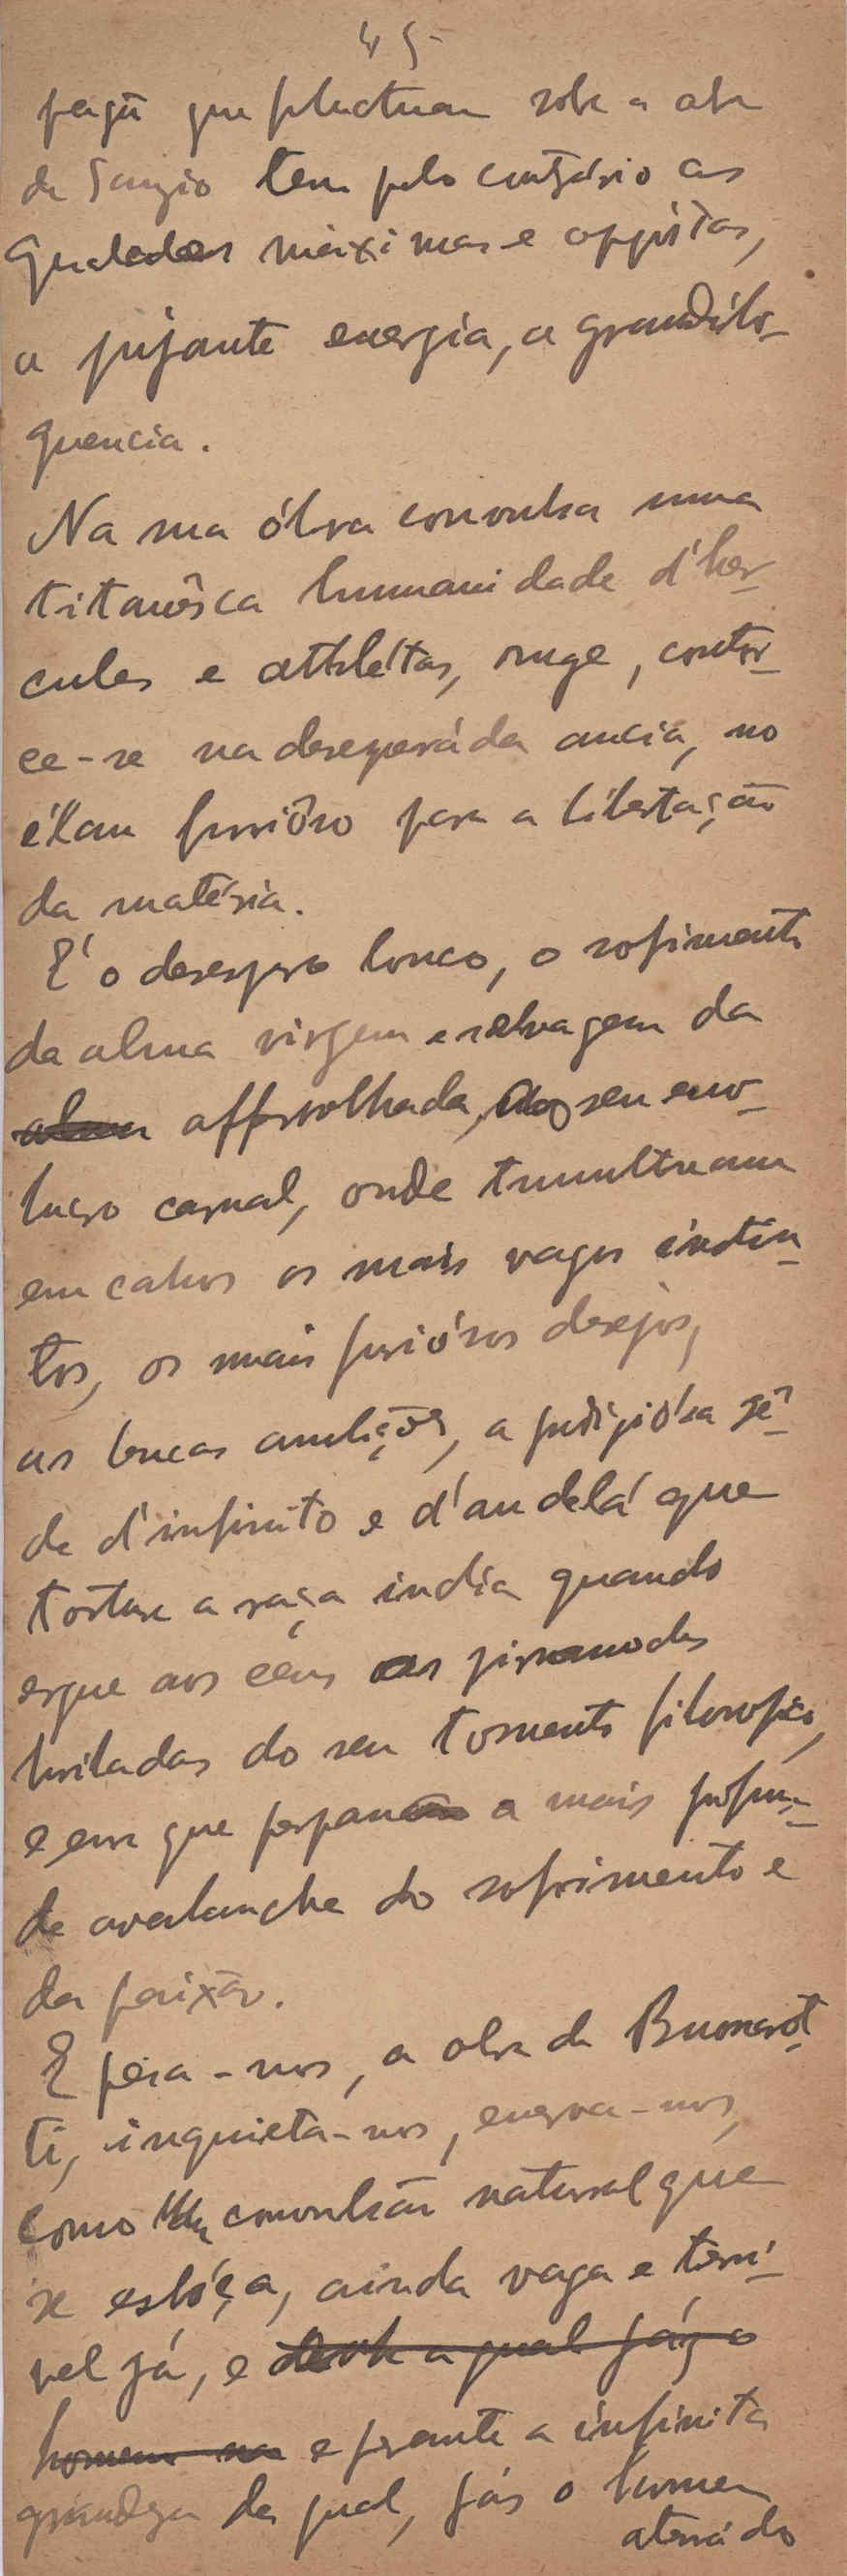 45
pagã que fluctuam sobre a obra
de Sanzio tem pelo contrário as
qualidades máximas e oppóstas,
a pujante energia, a grandílo-
quencia.
Na sua óbra convulsa uma
titanêsca humanidade d'hér-
cules e athlétas, ruge, contor-
ce-se na desesperáda ancia, no
élan furiôso para a libertação
da matéria.
E' o desespero louco, o sofrimento
da alma virgem e selvagem da
alma afferrolhada, ao seu envo-
lucro carnal, onde tumultuam
em cahos os mais vagos instin-
tos, os mais furiósos desejos,
as loucas ambições, a prodigiósa sê-
de d'infinito e d'au delá que
tortura a raça india quando
ergue aos céus as piramodes
buriladas do seu tormento filosofico,
e em que perpassa a mais profun-
da avalanche do sofrimento e
da paixão.
E pesa-nos, a obra de Buonarot-
ti, inquieta-nos, enerva-nos,
como uma convulsão natural que
se esbóça, ainda vaga e terri-
vel já, e deante a qual jáz o
homem na e perante a infinita
grandeza da qual, jás o homem
aterrádo